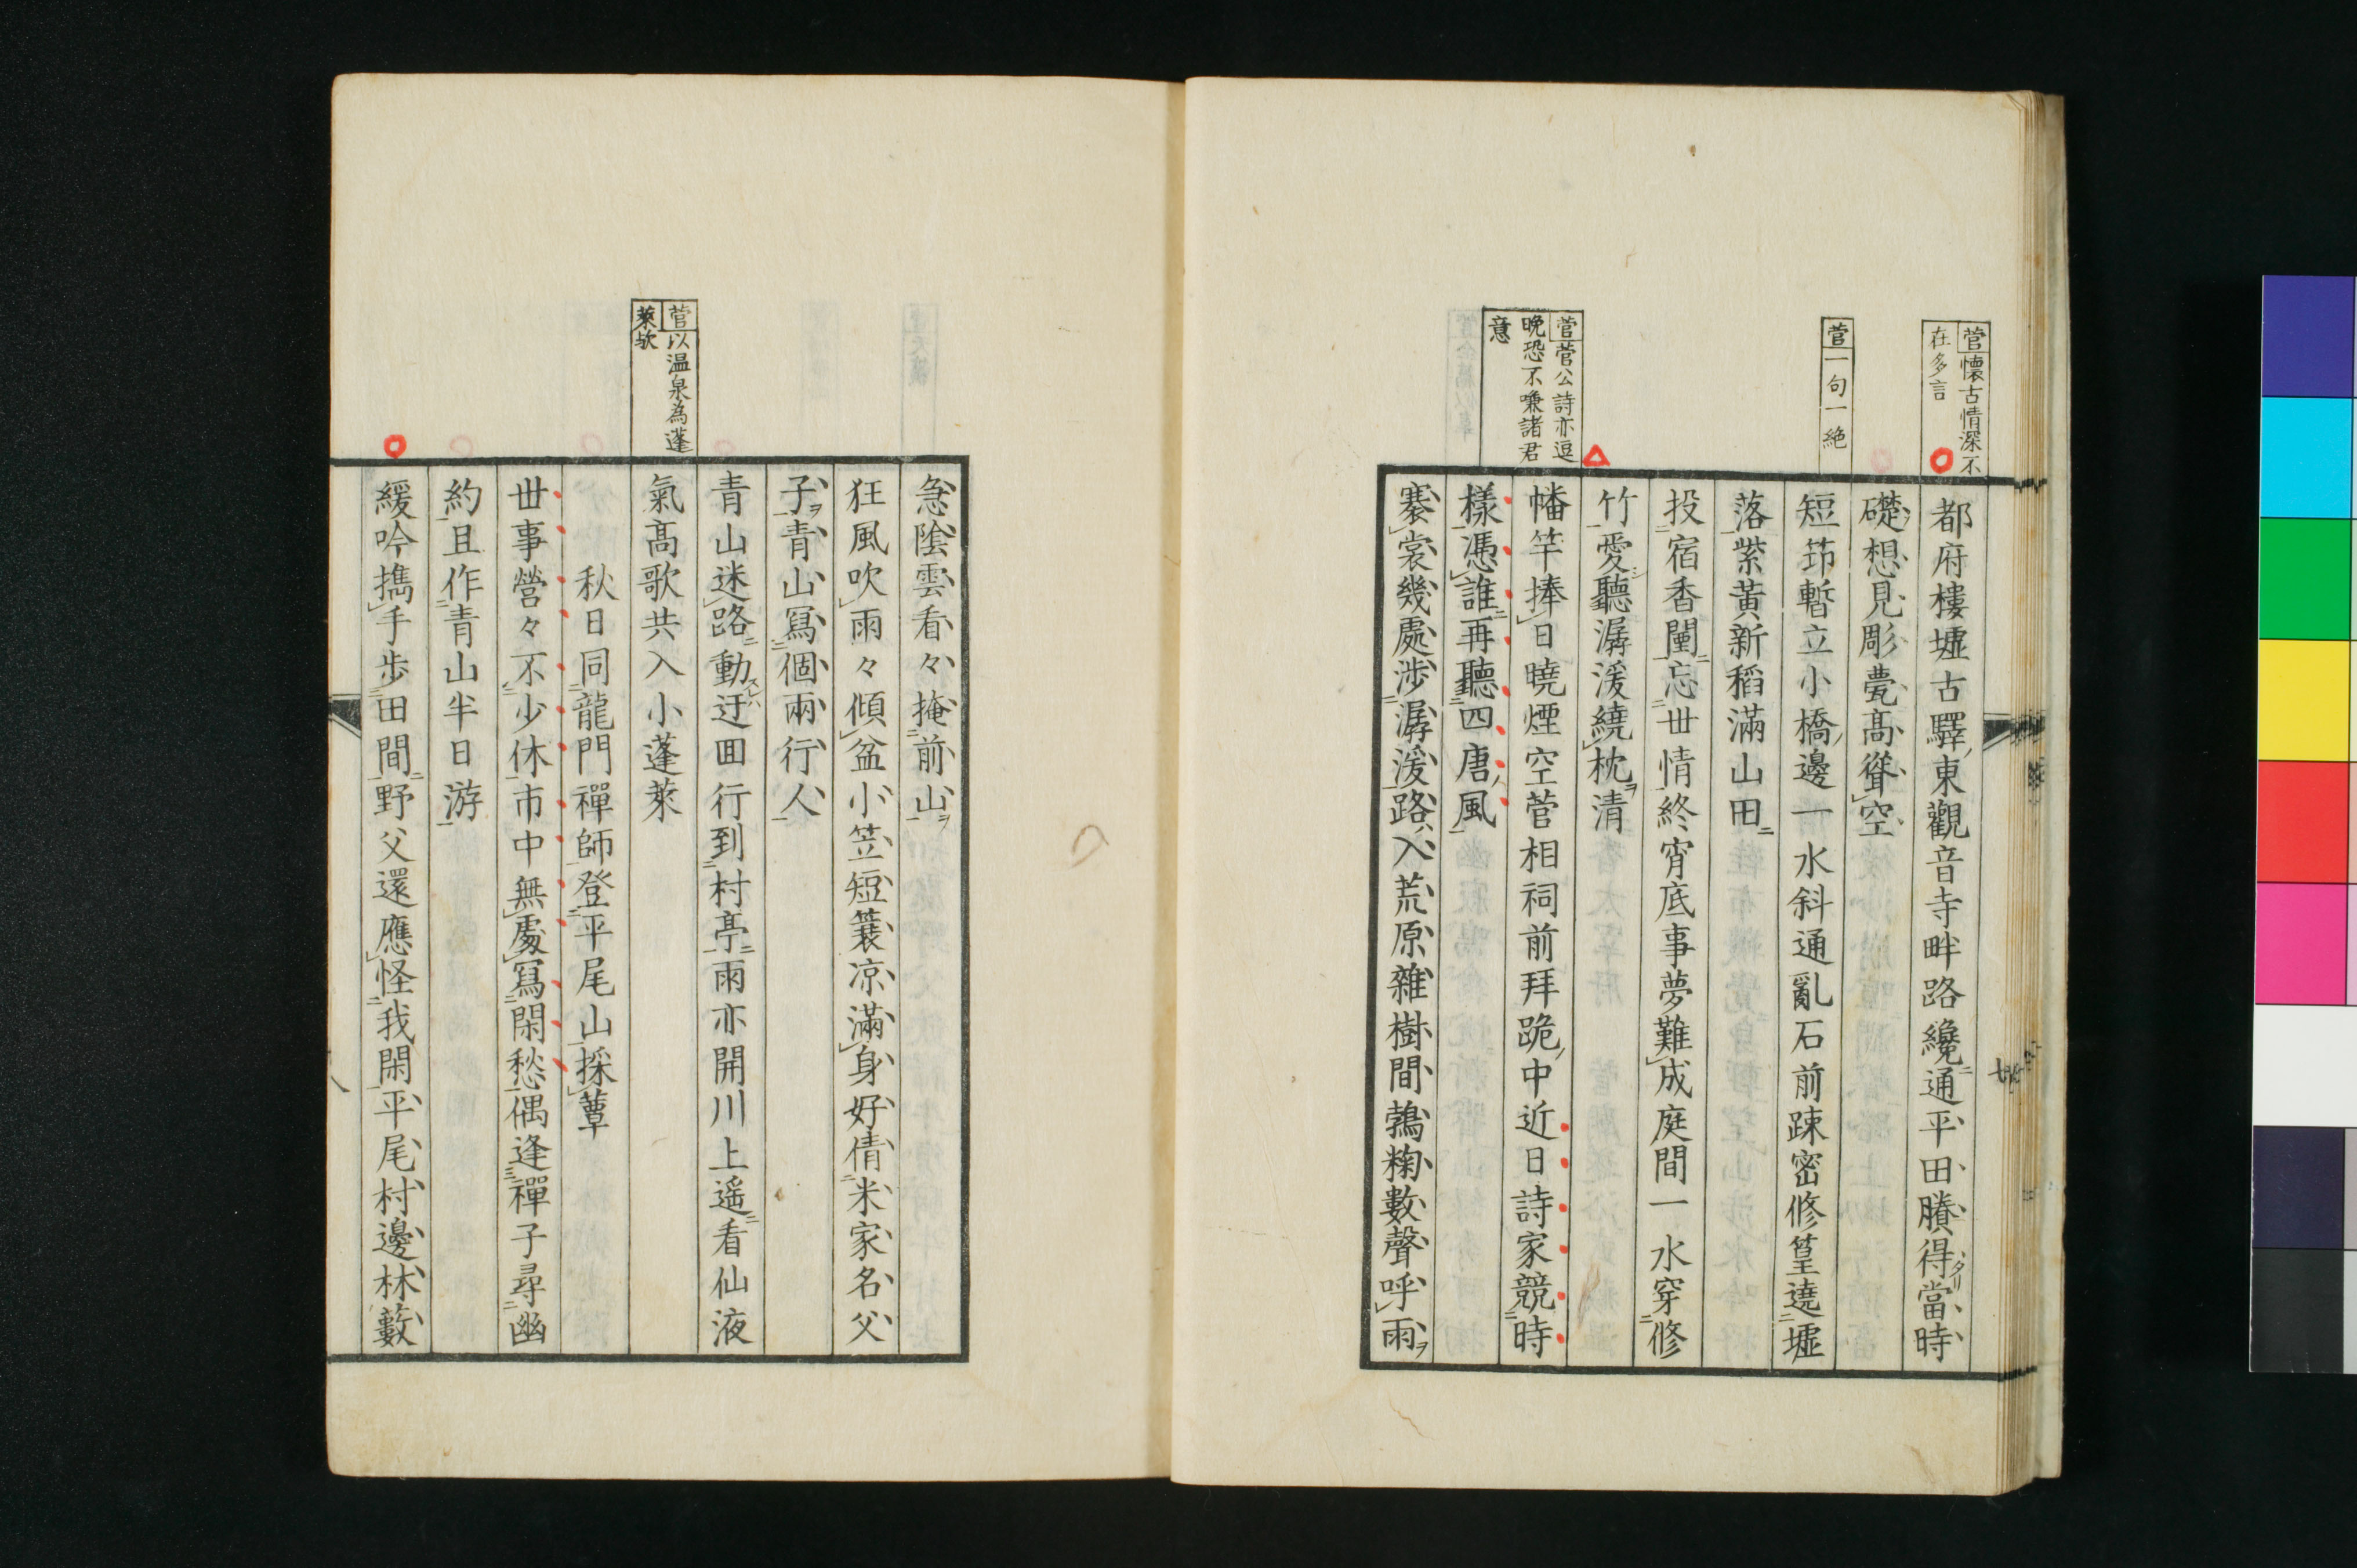 菅懐古情深不
在多言
菅一句一絶
菅菅公詩亦逗
晩恐不慊諸君
意
都府樓墟古驛東觀音寺畔路纔通平田賸得當時
礎想見彫甍高聳空
短笻暫立小橋邊一水斜通亂石前踈密修篁遶墟
落紫黃新稻滿山田
投宿香閨忘丗情終宵底事夢難成庭間一水穿修
竹愛聽潺湲繞枕清
幡竿捧日曉煙空菅相祠前拜跪中近日詩家競時
樣憑誰再聽四唐風
褰裳幾處渉潺湲路入荒原雜樹間鵓鞠數聲呼雨
菅以温泉為蓬
萊欤
急陰雲看々掩前山
狂風吹雨々傾盆小笠短簔凉滿身好倩米家名父
子青山寫個兩行人
青山迷路動迂囬行到村亭雨亦開川上遥看仙液
氣高歌共入小蓬萊
秋日同龍門禪師登平尾山採蕈
丗事營々不少休市中無處寫閑愁偶逢禪子尋幽
約且作青山半日游
緩吟携手步田間野父還應怪我閑平尾村邊林藪